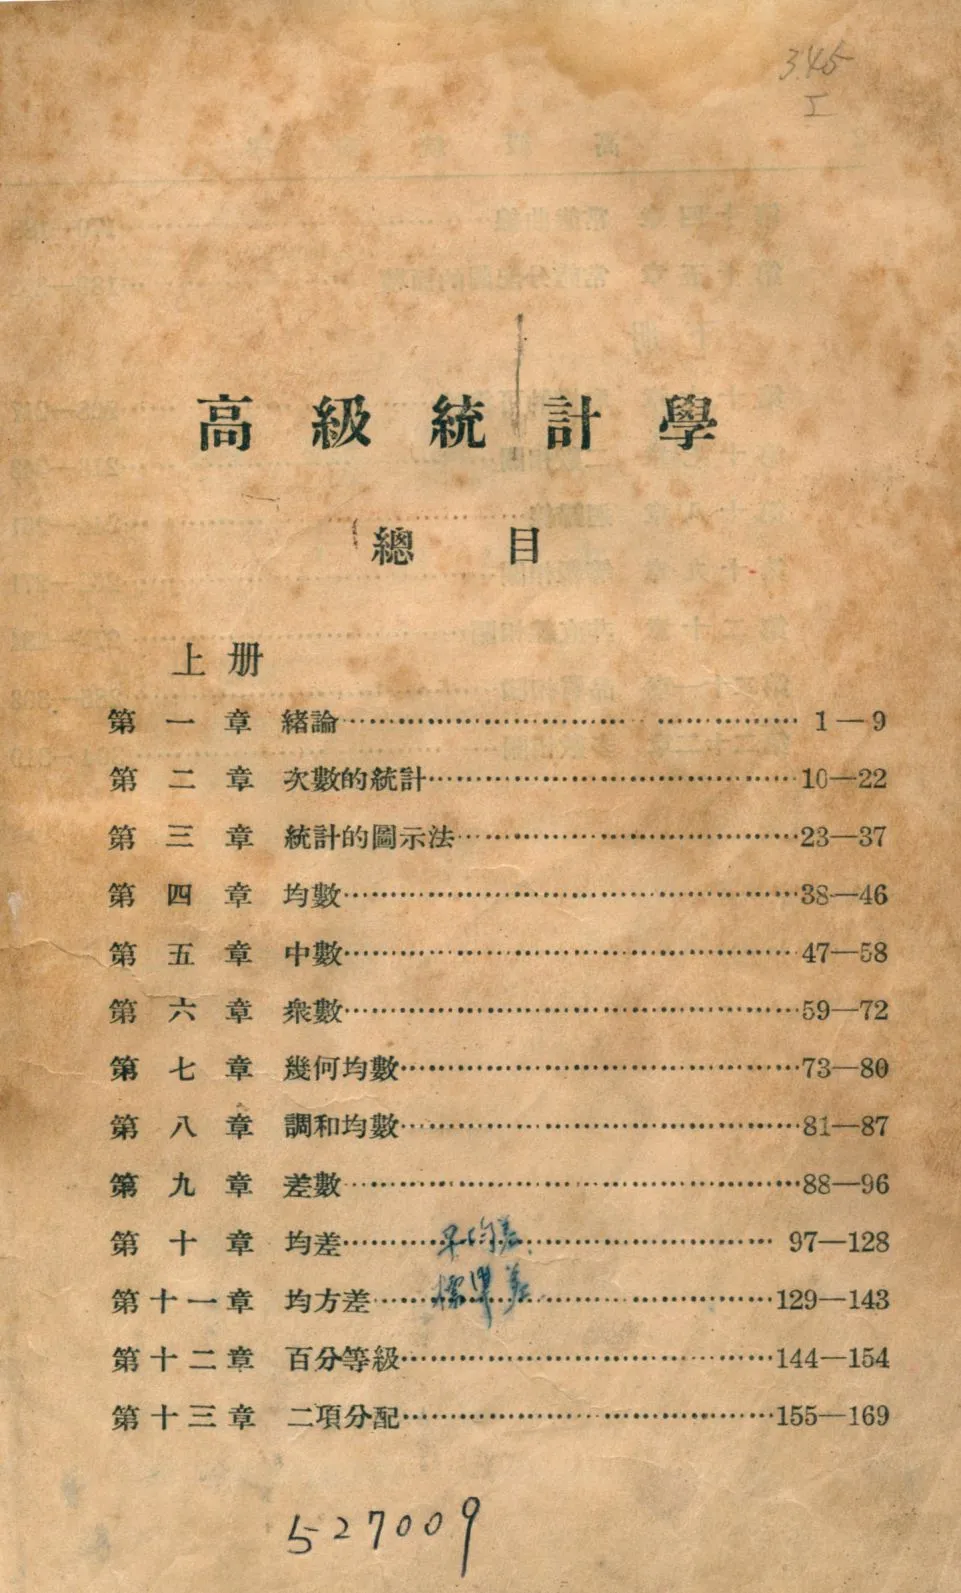 345
I
高級統計學
總目
上册
第一章 緒論 1—9
第二章 次數的統計 10—22
第三章 統計的圖示法 23—37
第四章 均數 38—46
第五章 中數 47—58
第六章 衆數 59—72
第七章 幾何均數 73—80
第八章 調和均數 81—87
第九章 差數 88—96
第十章 均差 平均差 97—128
第十一章 均方差 標準差 129—143
第十二章 百分等級 144—154
第十三章 二項分配 155—169
527009